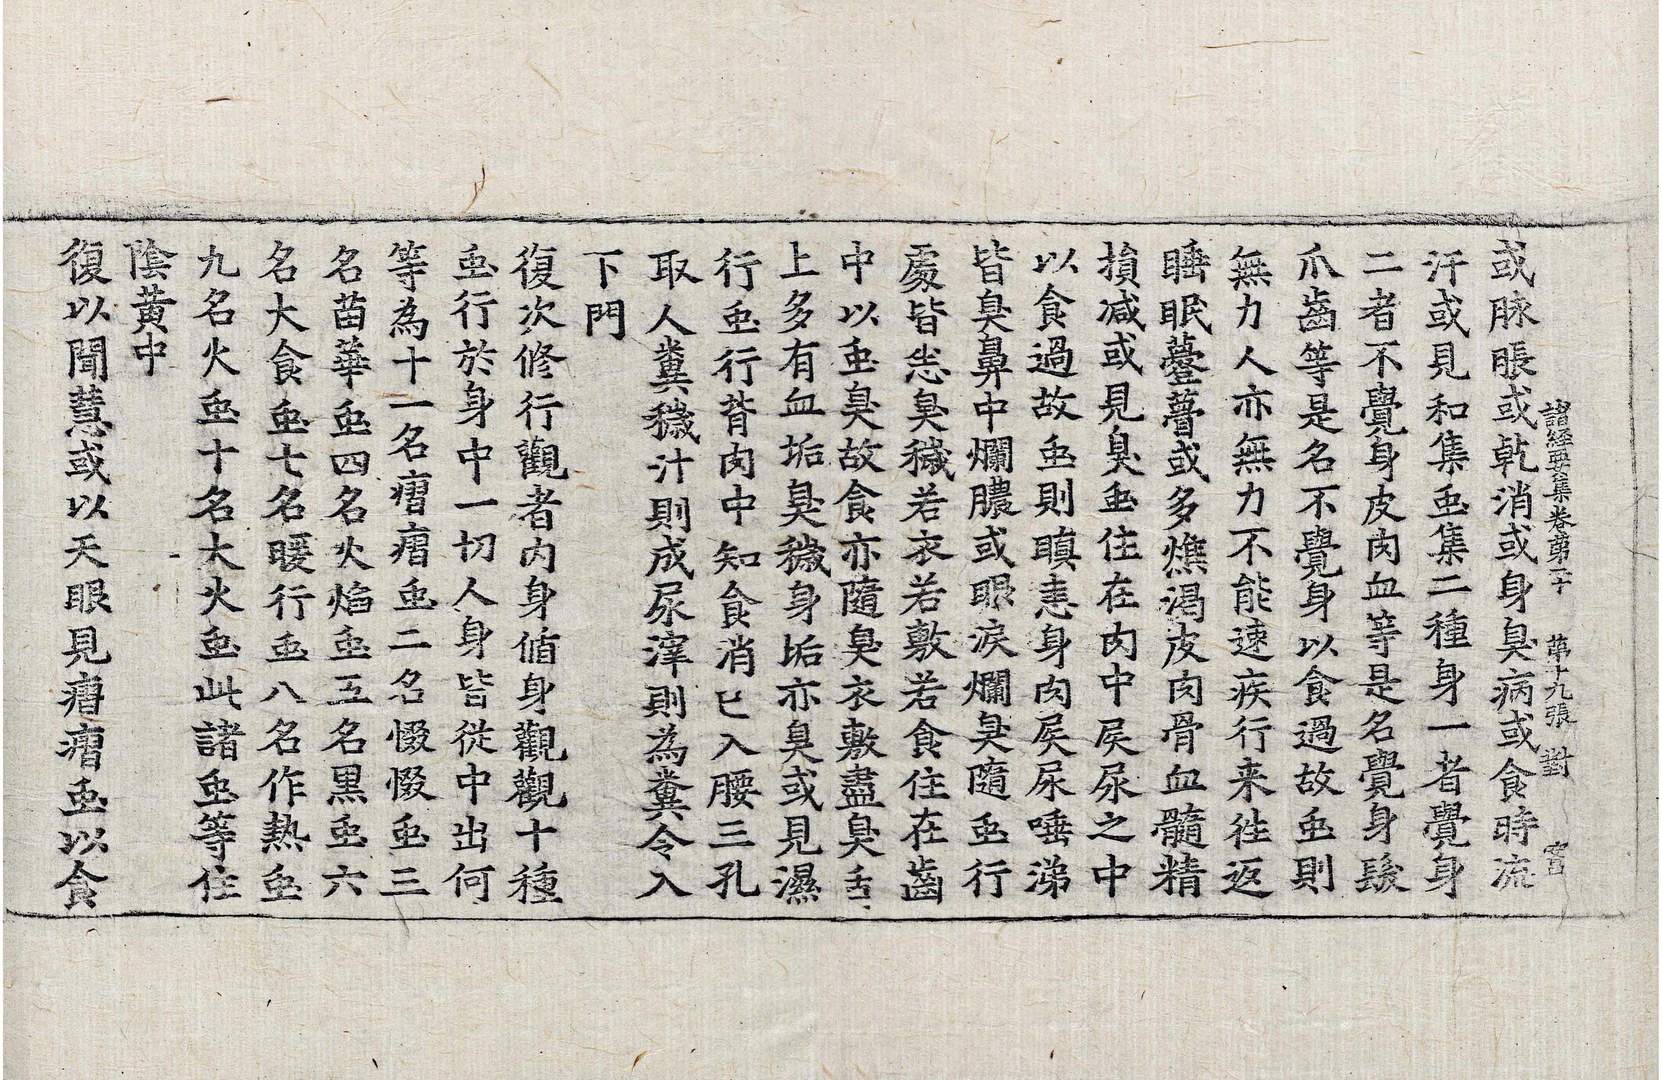 諸經要集卷第二十 第十九張 對
或脉脹或乾消或身臭病或食時流
汗或見和集䖝集二種身一者覺身
二者不覺身皮肉血等是名覺身髮
爪齒等是名不覺身以食過故䖝則
無力人亦無力不能速疾行来往返
睡眠薹瞢或多燋渴皮肉骨血髓精
損减或見臭䖝住在肉中屎尿之中
以食過故䖝則瞋恚身肉屎尿唾涕
皆臭鼻中爛膿或眼淚爛臭隨䖝行
處皆悉臭穢若衣若敷若食住在齒
中以䖝臭故食亦隨臭衣敷盡臭舌
上多有血垢臭穢身垢亦臭或見濕
行䖝行背肉中知食消已入腰三孔
取人糞穢汁則成尿滓則為糞令入
下門
復次修行觀者内身循身觀觀十種
䖝行於身中一切人身皆從中出何
等為十一名瘤瘤䖝二名惙惙䖝三
名苗華䖝四名火焰䖝五名黑䖝六
名大食䖝七名暖行䖝八名作熱䖝
九名火䖝十名大火䖝此諸䖝等住
陰黃中
復以聞慧或以天眼見瘤瘤䖝以食